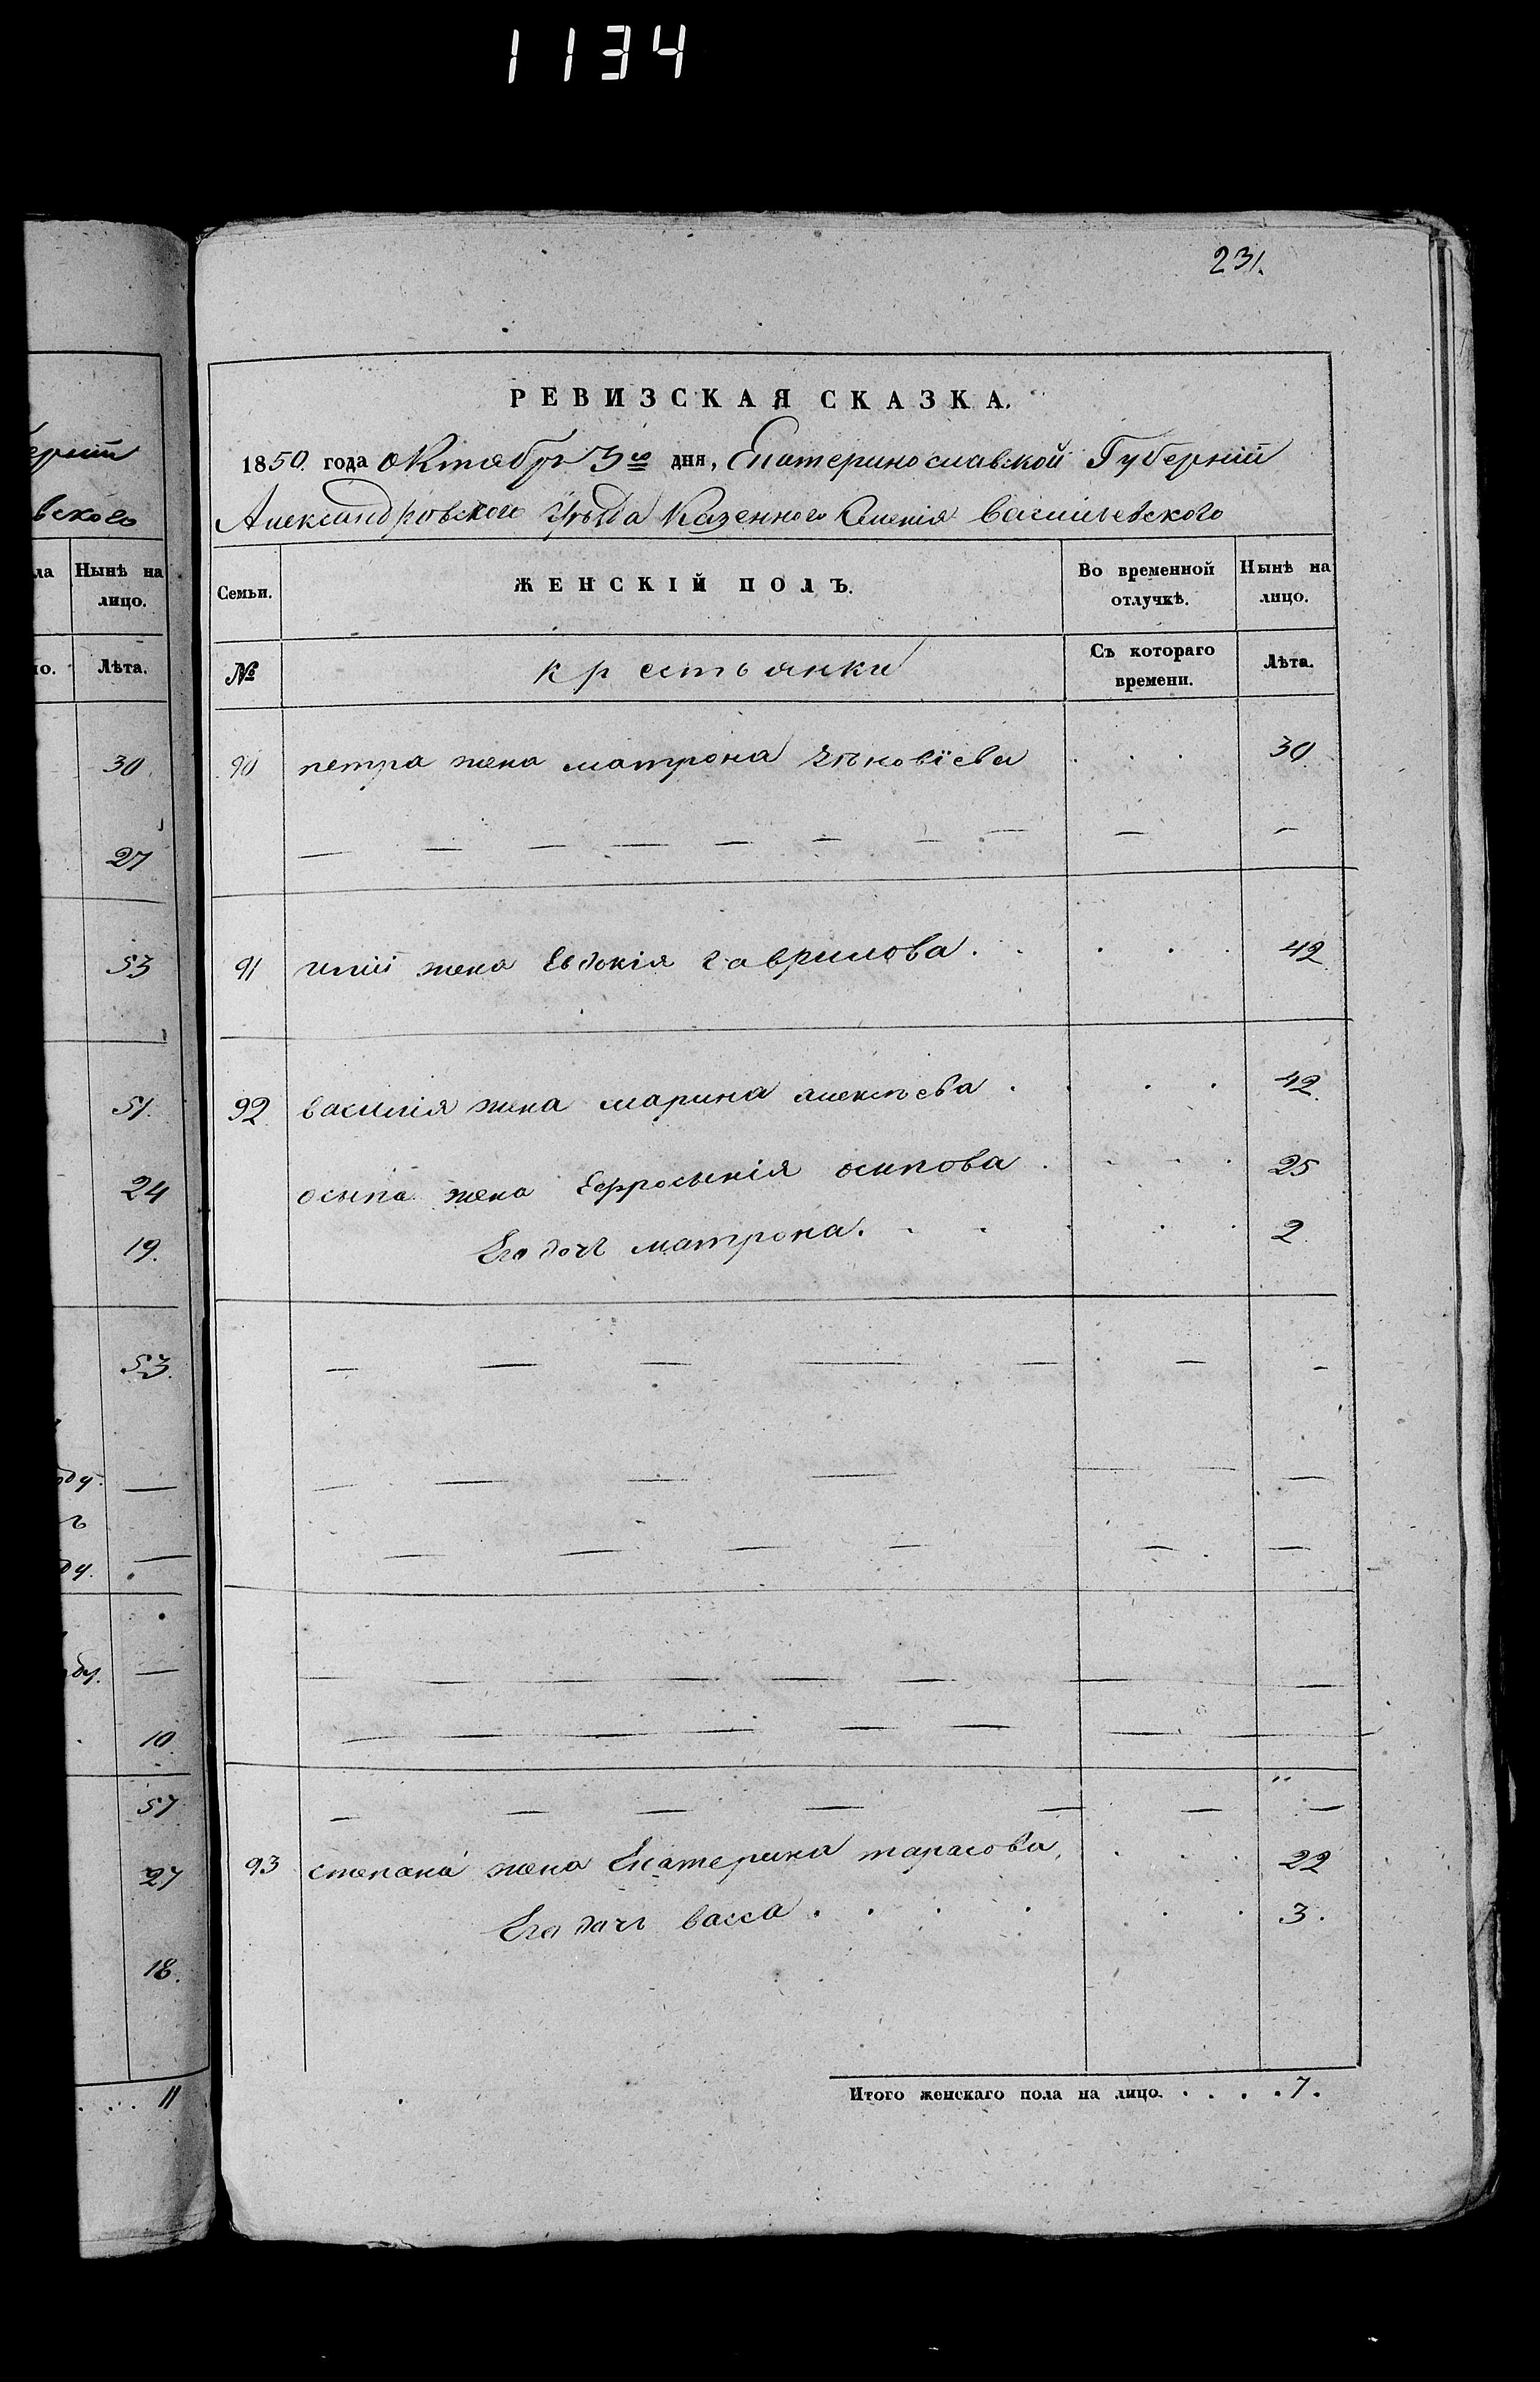 1134
231.
РЕВИЗСКАЯ СКАЗКА.
1850. года октября 3го дня, Екатеринославской Губерніи
Александровского Уѣзда Казенного Имѣнія Васильевского
Семьи. ЖЕНСКІЙ ПОЛЪ. Во временной отлучкѣ. Нынѣ на лицо.
№ крестьянки Съ котораго времени. Лѣта.
90 петра жена матрона 30
91 иліи жена Евдокія гаврилова. 42
92 василія жена марина алексѣева 42
осипа жена Ефросынія осипова 25
Его дочь матрона. 2
93 степана жена Екатерина тарасова, 22
Его дочь васса 3.
Итого женскаго пола на лицо. 7.
ерніи
вского
ла Нынѣ на лицо.
Лѣта.
30.
27
53
51.
24
19.
53.
ду.
ду.
10
57
27
18.
11